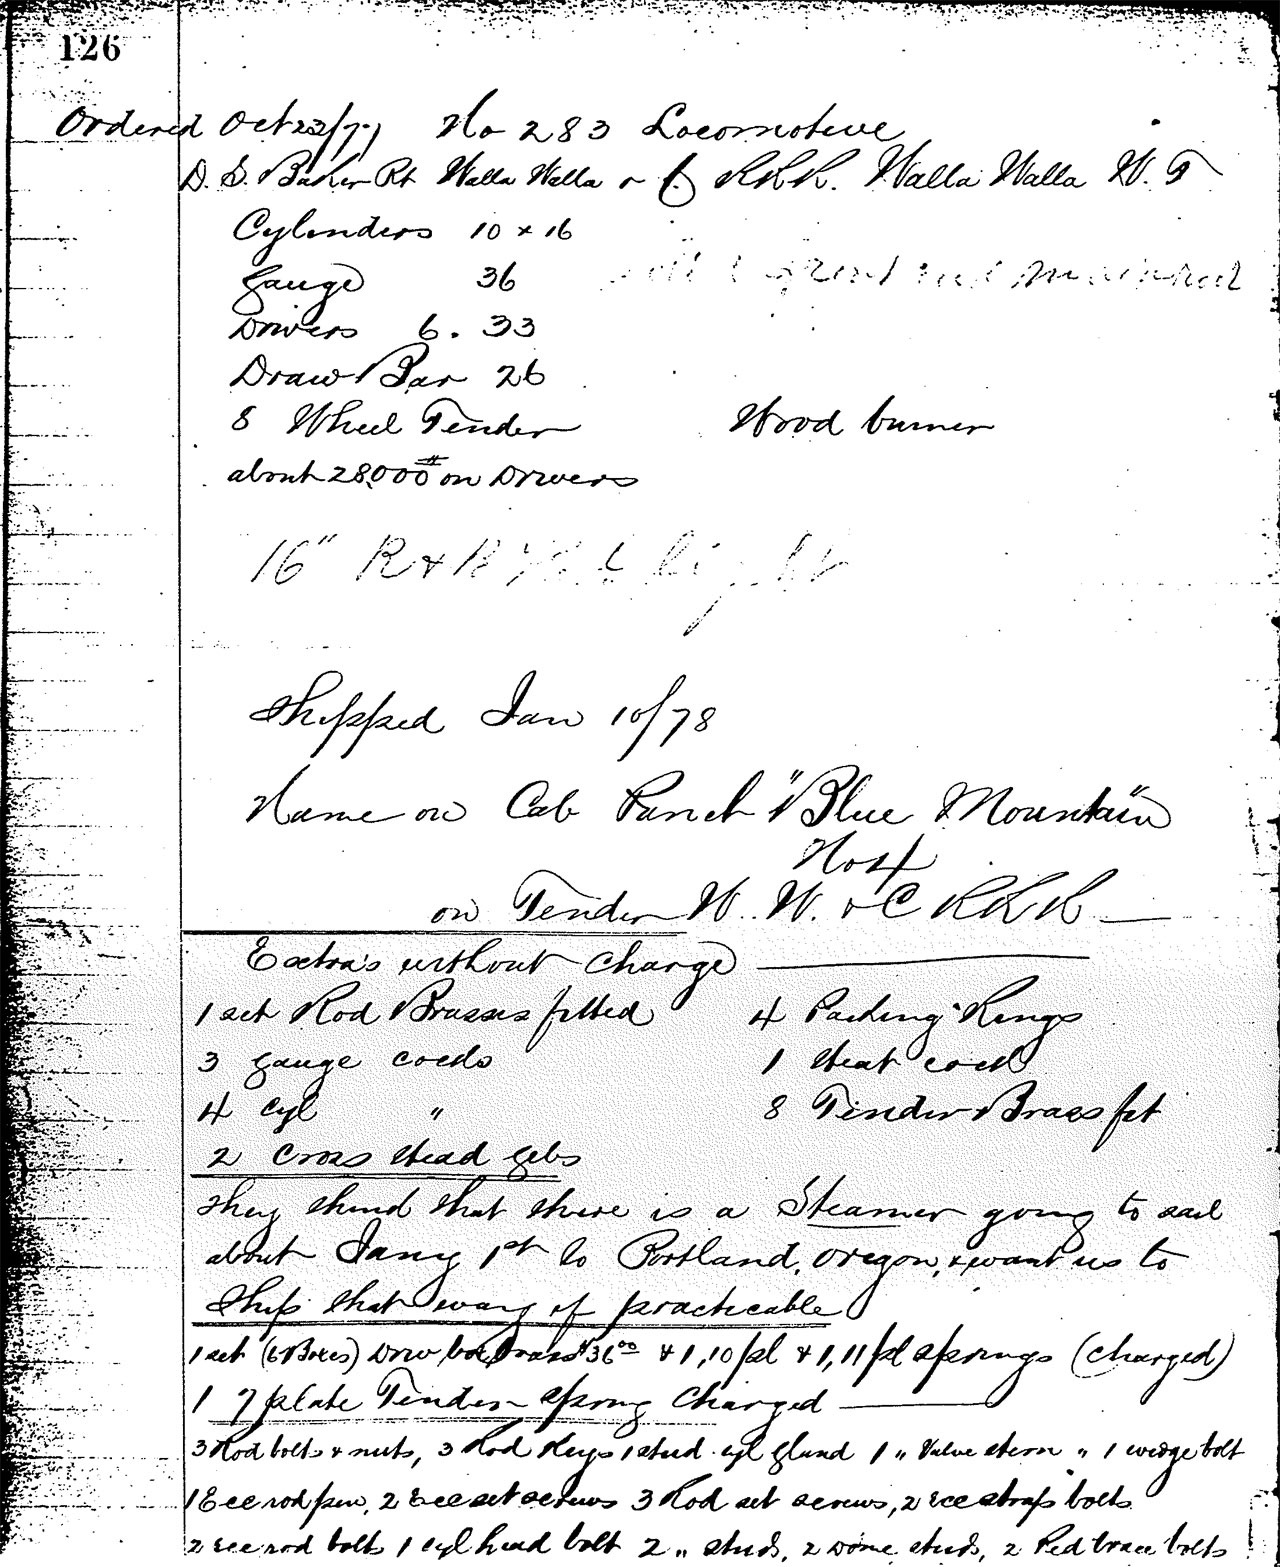 126
Ordered Oct 23/77 No 283 Locomotive
D. S. Baker Pt Walla Walla & C. R.R.R. Walla Walla W. T
Cylinders 10 x 16
Gauge 36
front end
Drivers 6. 33
Draw Bar 26
8 Wheel Tender Wood burner
about 28,000# on Drivers
16" R & light
Shipped Jan 10/78
Name on Cab Panel "Blue Mountain"
No 4
on Tender W. W. & C R.R.R
Extra's without charge
1 set Rod Brasses fitted 4 Packing Rings
3 gauge cocks 1 Heat cock
4 Cyl " 8 Tender Brass fit
2 Cross Head gibs
They think that there is a Steamer going to sail
about Jany 1st to Portland, Oregon, & want us to
Ship that way if practicable
1 set (6 Boxes) Driv box brass $36.00 & 1, 10 pl & 1, 11 pl springs (charged)
1 7 plate Tender Spring charged
3 Rod bolts & nuts, 3 Rod Keys 1 stud cyl gland 1 " Valve stem " 1 wedge bolt
1 Ecc rod pin, 2 Ecc set screws 3 Rod set screws, 2 ecc strap bolts
2 ecc rod bolts 1 cyl head bolt 2 " studs, 2 dome studs, 2 Ped brace bolts